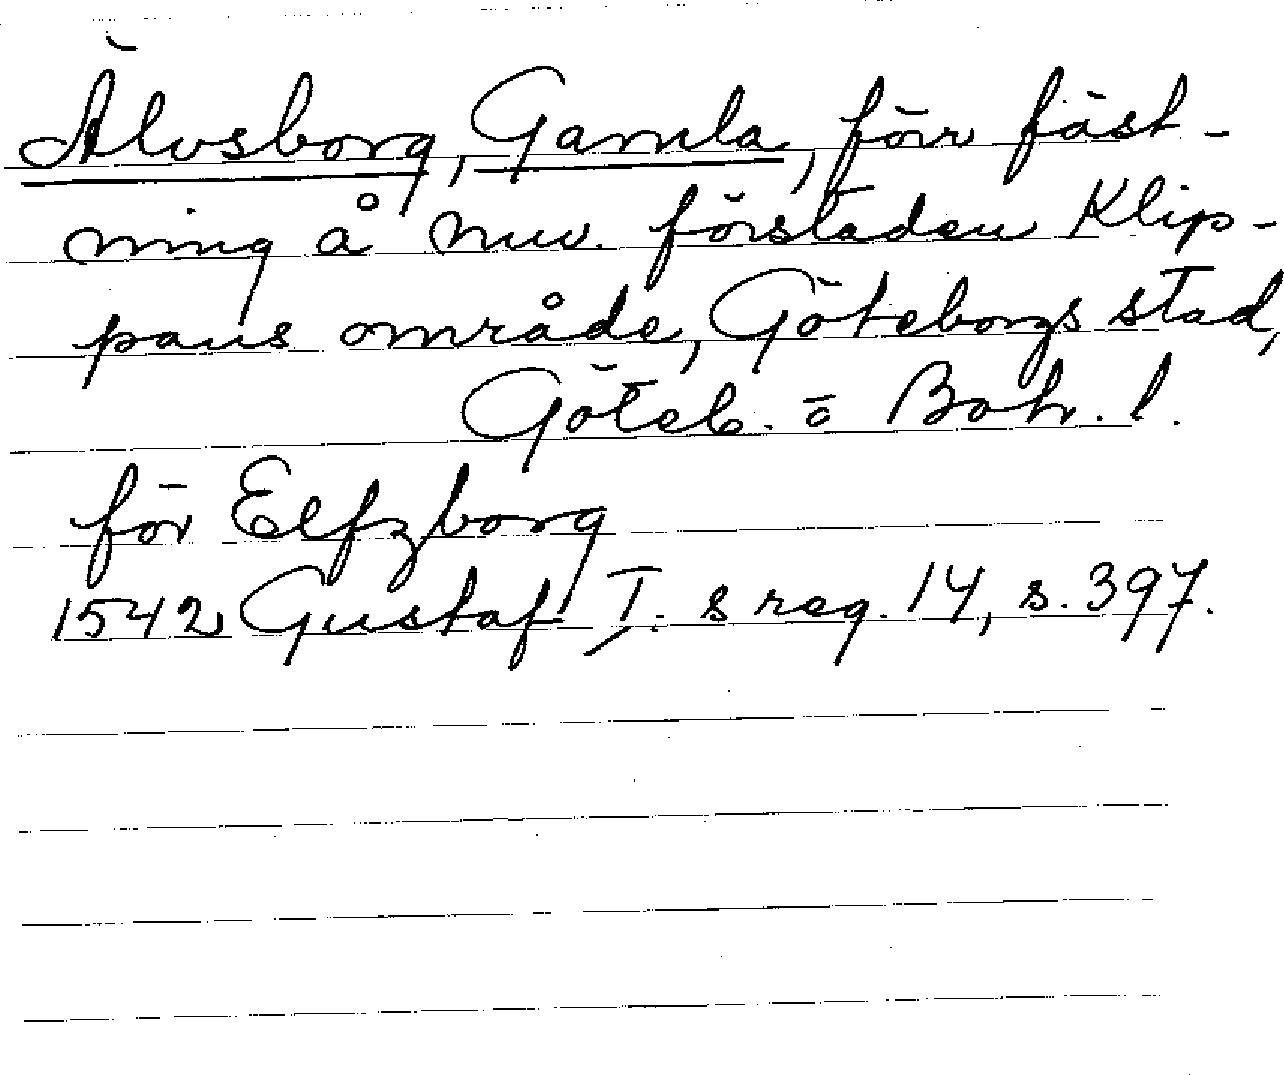 Älvsborg, Gamla, förr fäst-
ning å nuv. förstaden Klip-
pans område, Göteborgs stad,
Göteb. o Boh. l.
för Elfzborg
1542 Gustaf I. s reg. 14, s. 397.